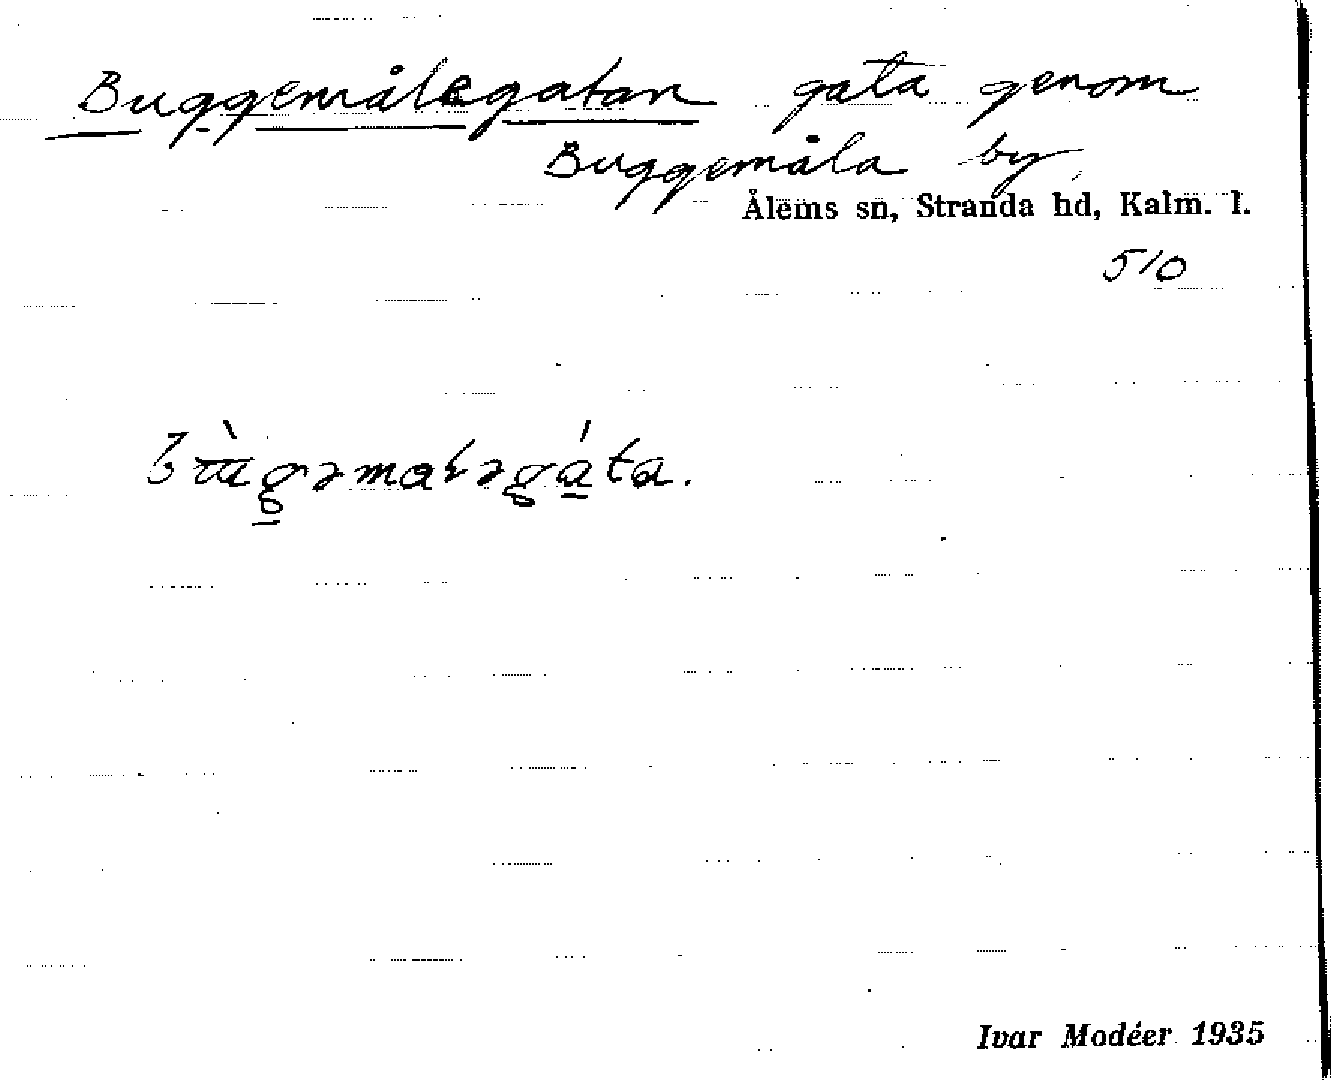 Buggemålegatan gata genom
Buggemåla by
Ålems sn, Stranda hd, Kalm. l.
510
Ivar Modéer 1935